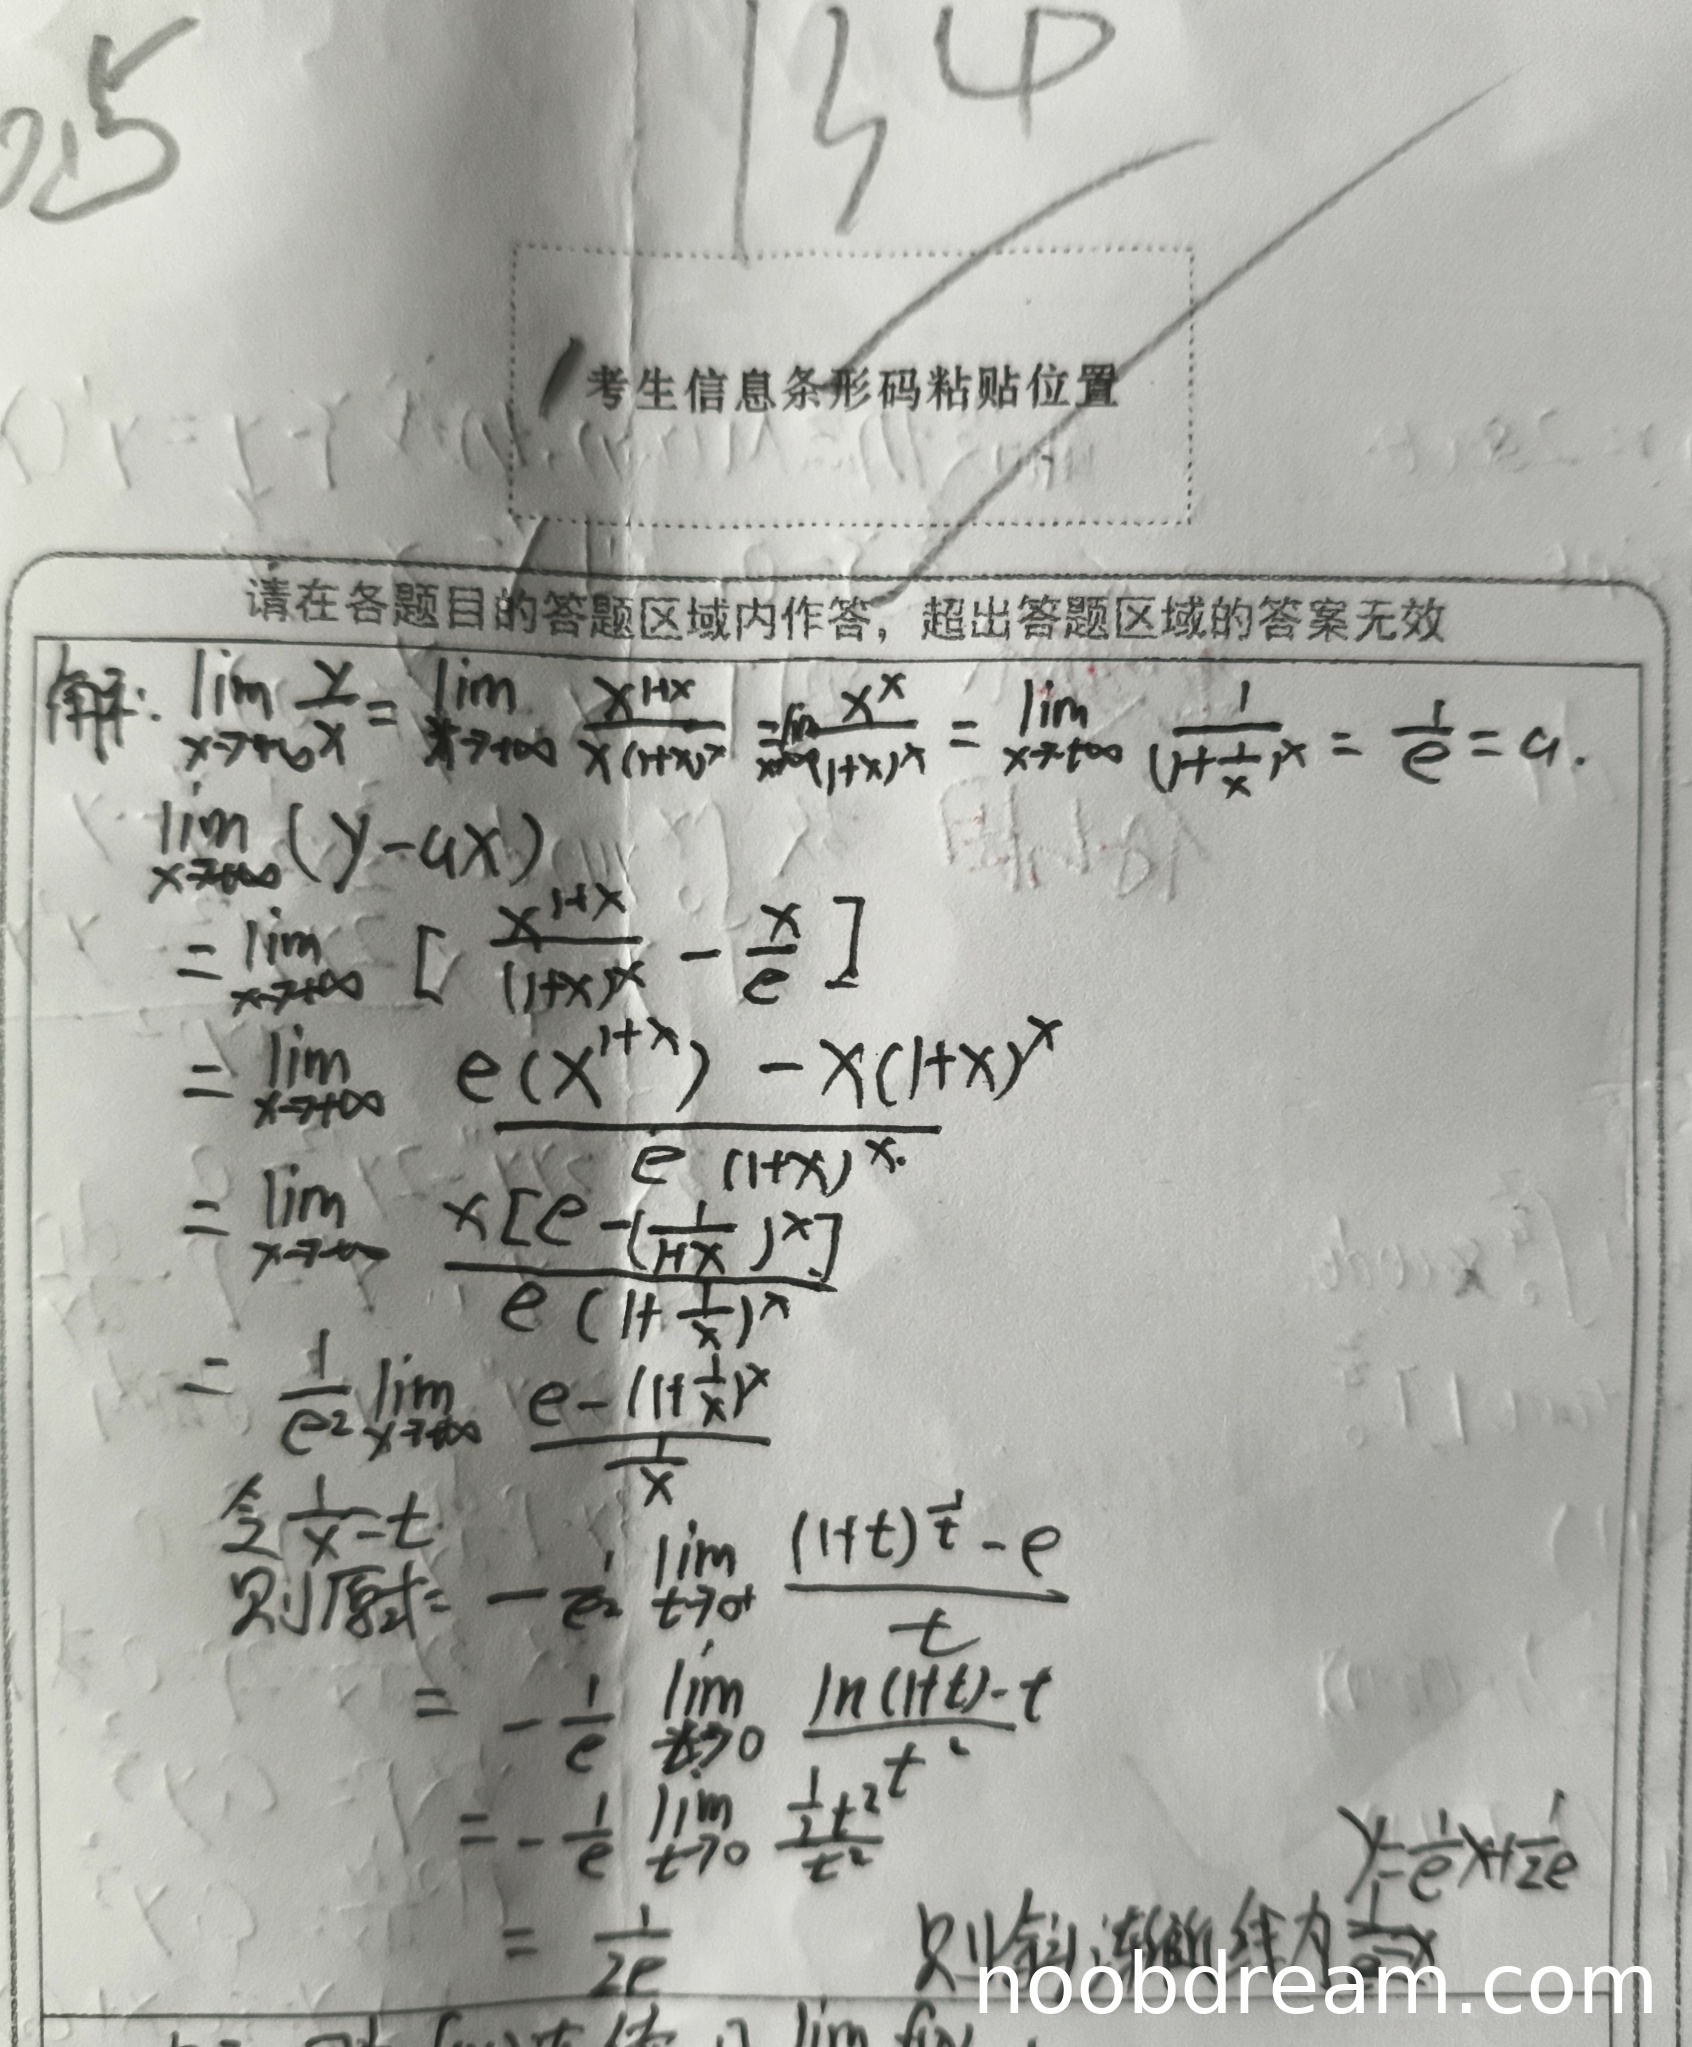 25
134
考生信息条形码粘贴位置
请在各题目的答题区域内作答，超出答题区域的答案无效
解: lim x→+∞ y/x = lim x→+∞ x^(1+x)/(x(1+x)^x) = lim x→+∞ x^x/(1+x)^x = lim x→+∞ 1/(1+1/x)^x = 1/e = a.
lim x→+∞ (y-ax)
= lim x→+∞ [x^(1+x)/(1+x)^x - x/e]
= lim x→+∞ (e(x^(1+x)) - x(1+x)^x)/(e(1+x)^x)
= lim x→+∞ x[e-(1/(1+x))^x]/(e(1+1/x)^x)
= 1/e² lim x→+∞ (e-(1+1/x)^x)/(1/x)
令 1/x = t
则原式= -1/e² lim t→0+ ((1+t)^(1/t) - e)/t
= -1/e lim t→0 (ln(1+t)-t)/t²
= -1/e lim t→0 (1/2 t²)/t²
= 1/2e
y=1/e x+1/2e
则斜渐近线为
noobdream.com